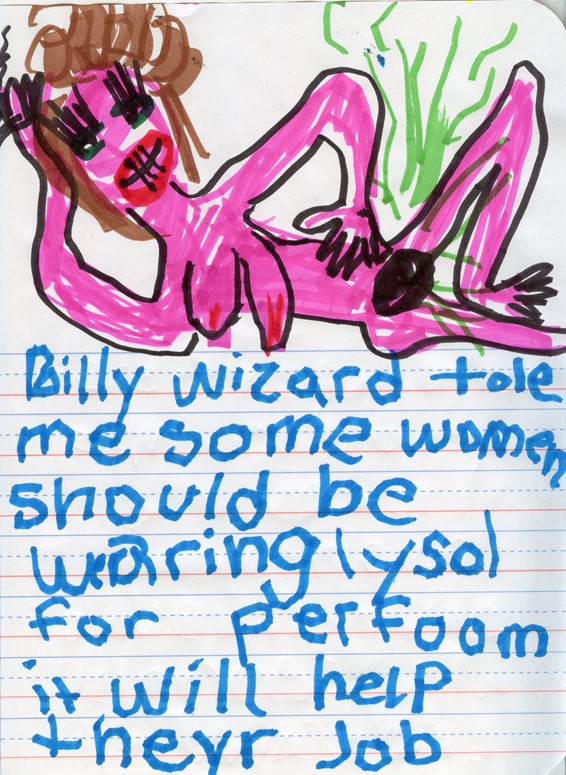 Billy wizard tole
me some women
should be
waring lysol
for perfoom
it will help
theyr Job